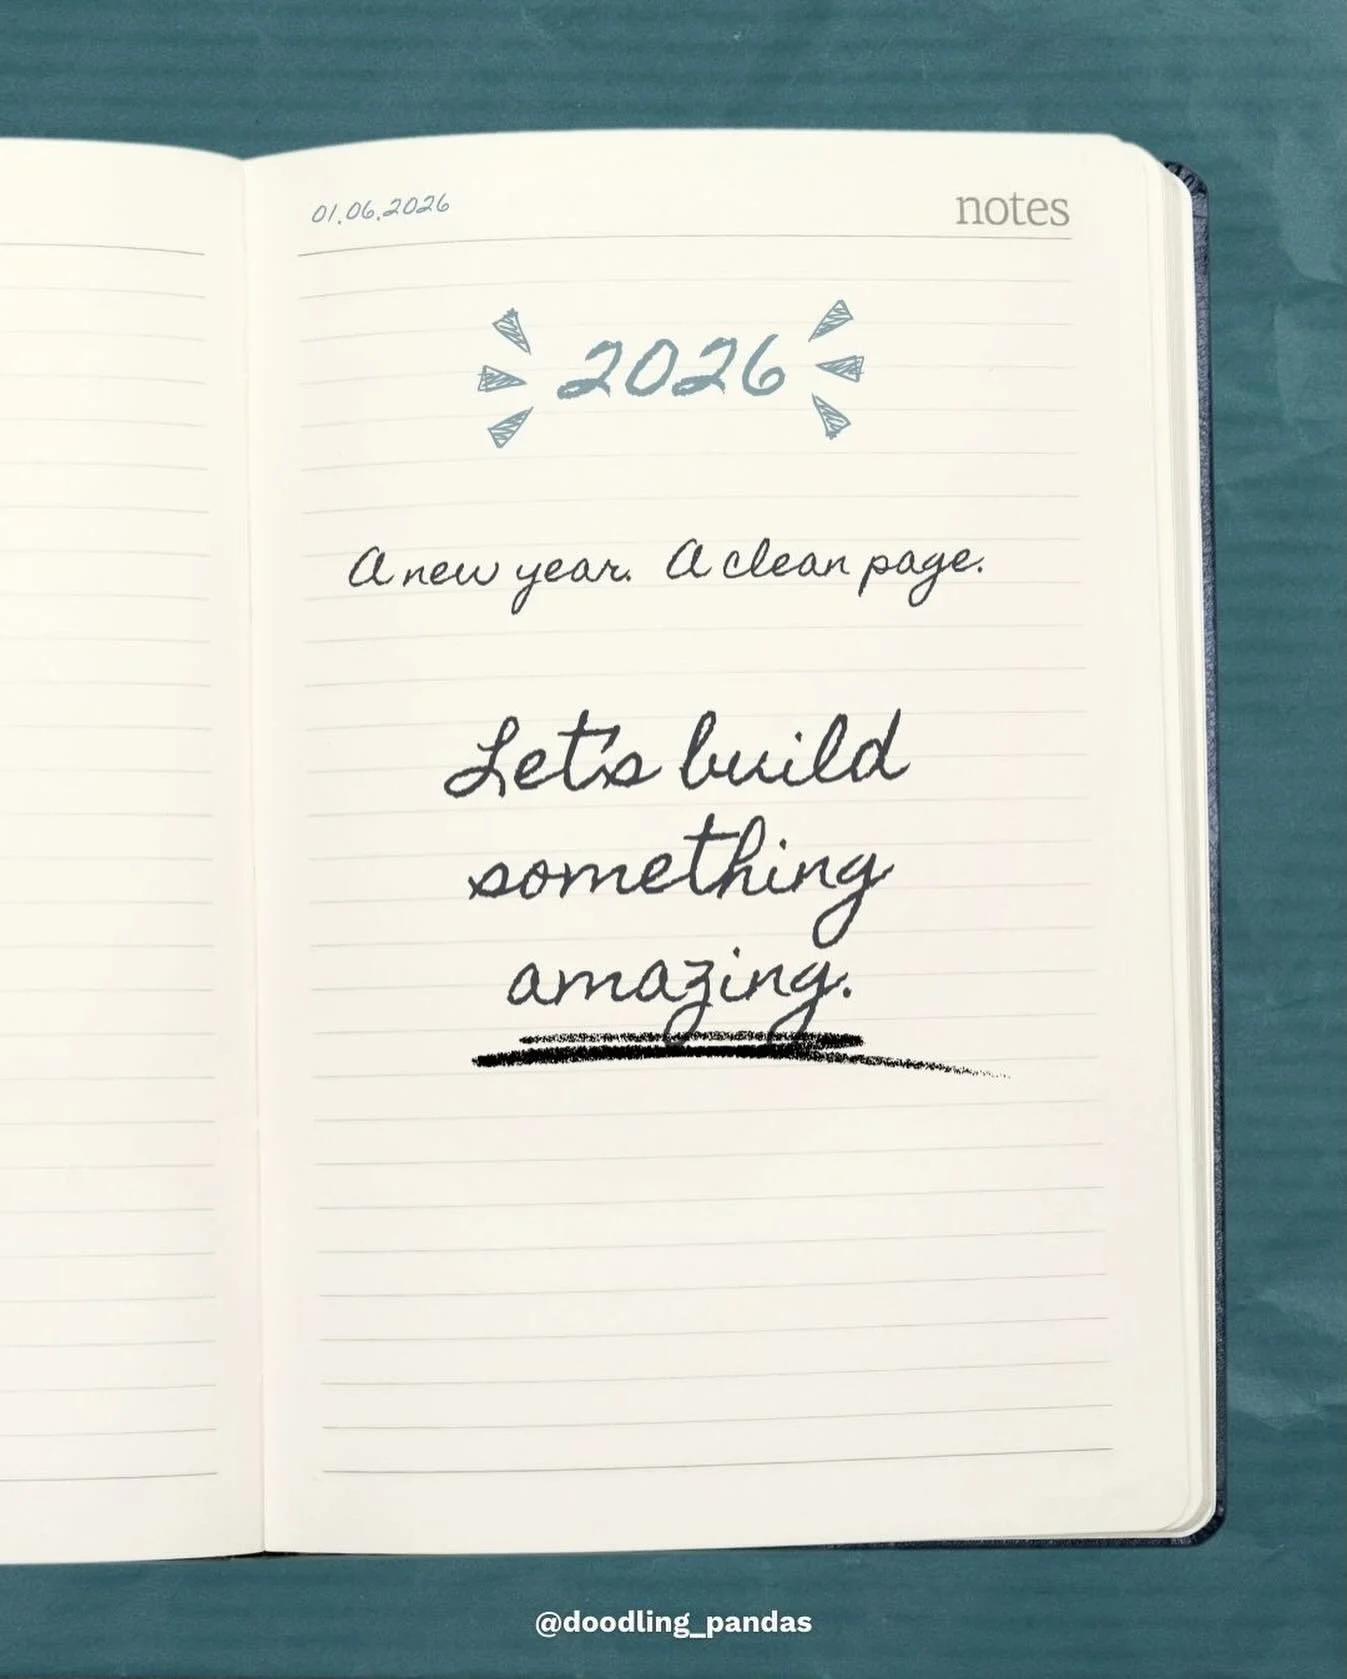 01.06.2026
notes
2026
A new year. A clean page.
Let's build
something
amazing.
@doodling_pandas